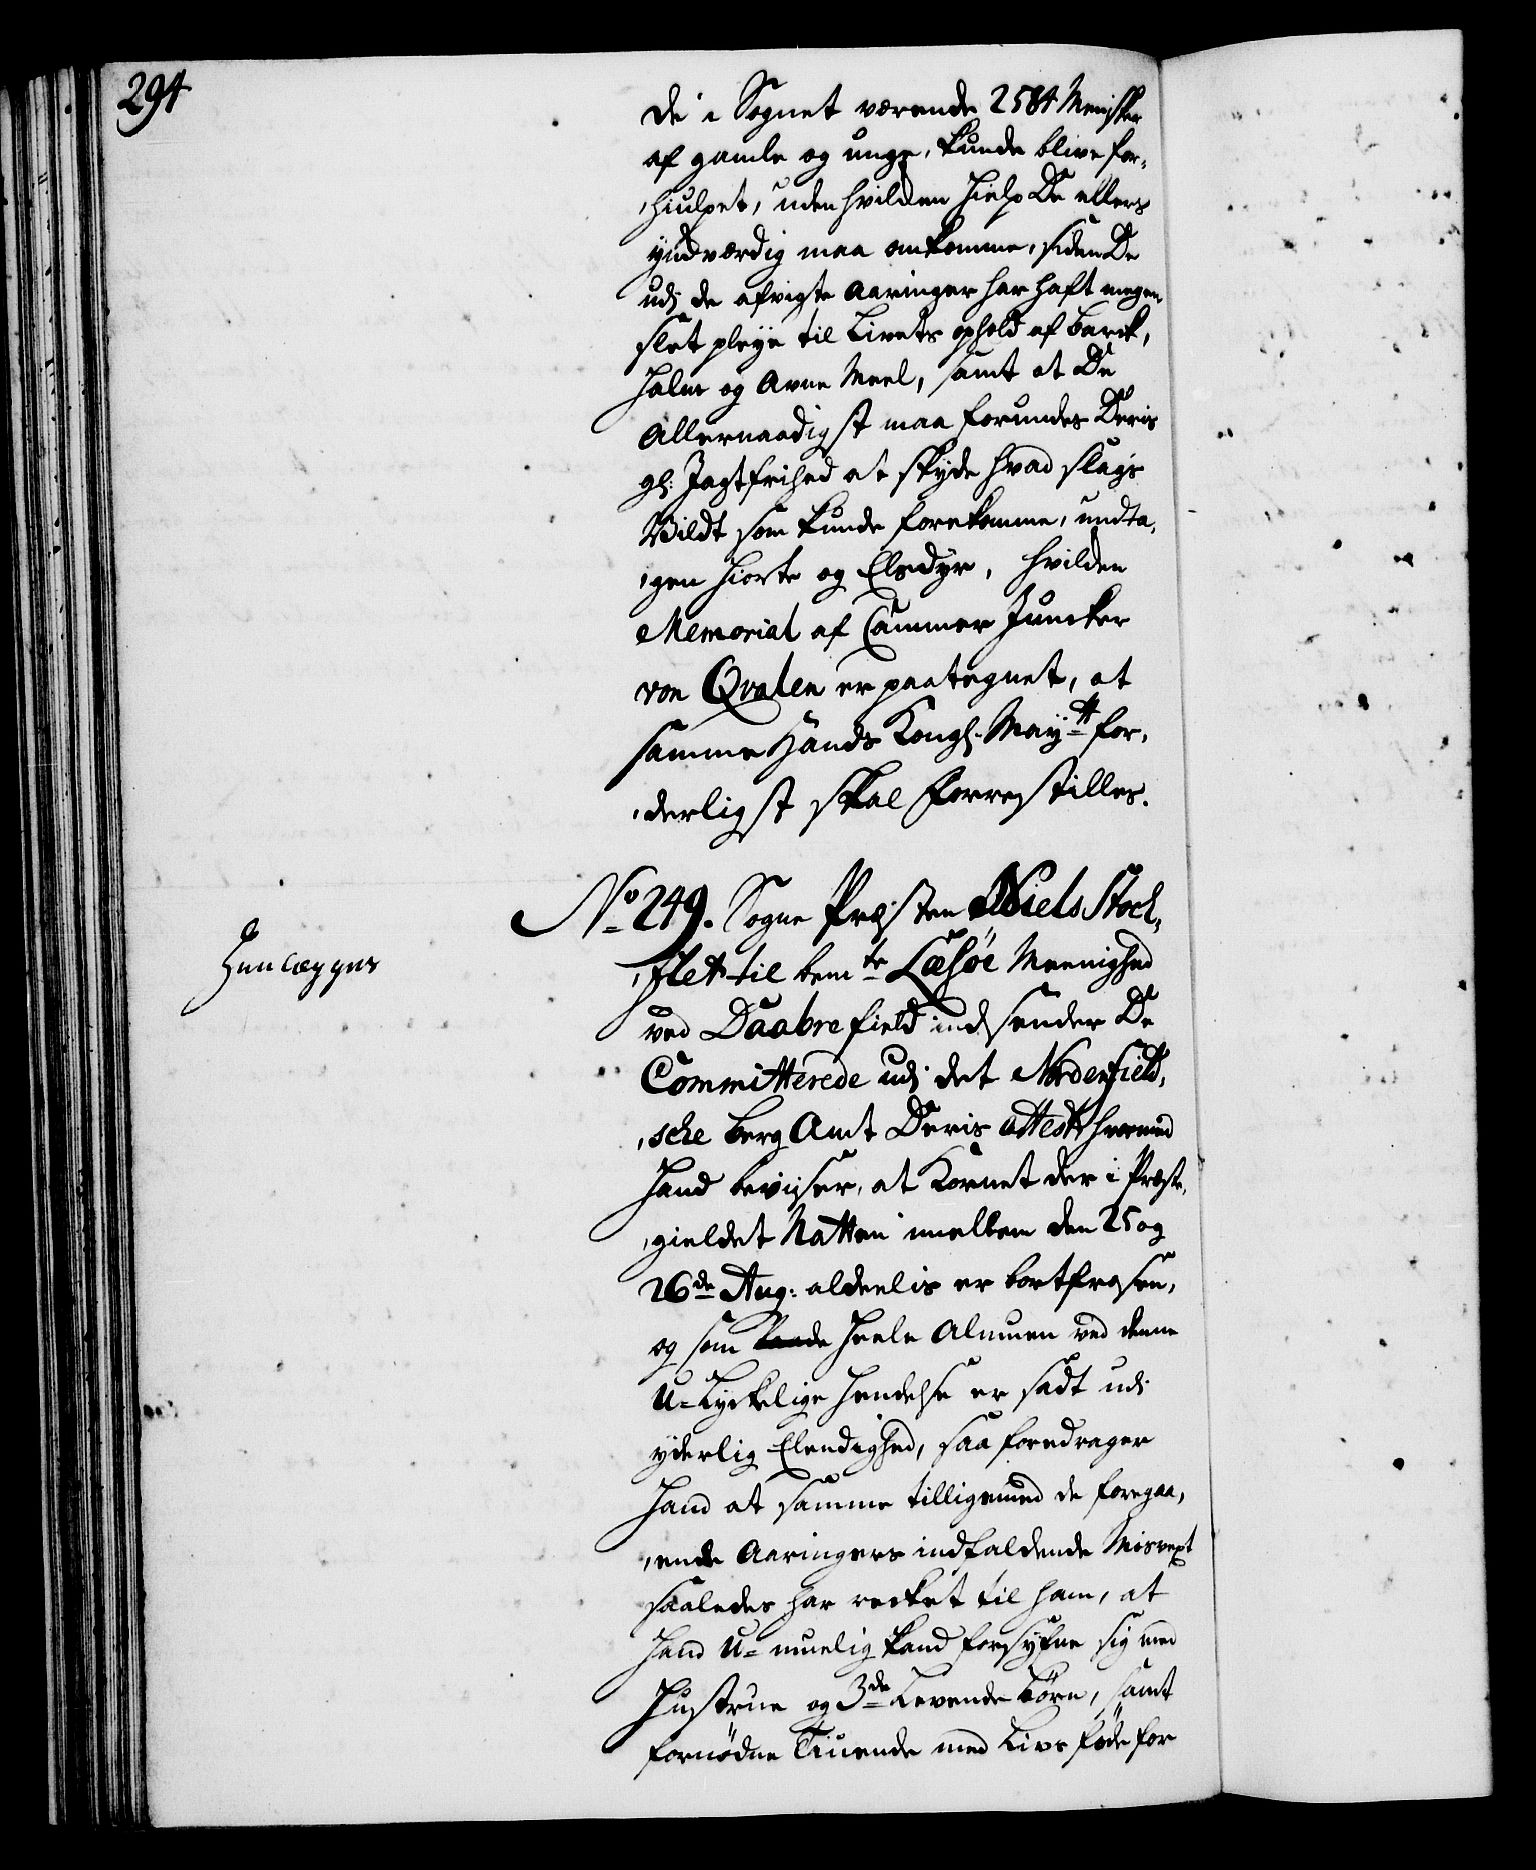 294
de i Sognet værende 2584 Menisker
af gamle og unge, kunde blive for,
,hiulpet, uden hvilken Hielp De ellers
ynckværdig maa omkomme, siden De
udj de afvigte Aaringer har haft megen
slet pleye til Livets ophold af barck,
Halm og Avne Meel, samt at De
Allernaadigst maa forundes Deris
gl: Jagtfrihed at skyde hvad slags
Vildt som kunde forekomme, undta,
,gen Hiorte og Elsdyr, hvilcken
Memorial af Cammer Juncker
von Qvalen er paategnet, at
samme Hands Kongl. Maytt for,
,derligst skal Forrestilles.
No 249. Sogne Præsten Niels Stock,
,flet til bemte Læsøe Meenighed
ved Daabrefield indsender De
Committerede udj det Nordenfield,
,sche Berg Amt Deris Attest hvormed
Hand beviiser, at Kornet der i Præste,
,gieldet Natten imellem den 25 og
26de Aug: aldeelis er bortfrosen,
og som heele Almuen ved denne
U-Lyckelige Hendelse er sadt udi
yderlig Elendighed, saa foredrager
Hand at samme tilligemed de foregaa,
,ende Aaringers indfaldende Misvext
saaledes har recket til ham, at
Hand U-muelig kand forsyfne sig med
Hustrue og 3de Levende Børn, samt
fornødne Tiuende med Livs føde for
Henlægges